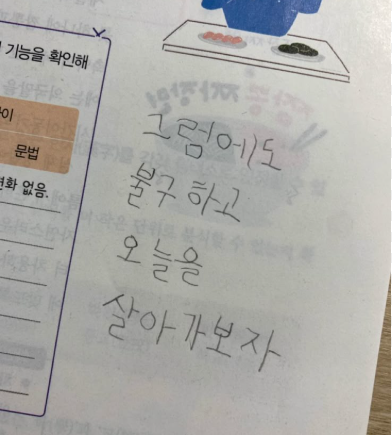 기능을 확인해
문법
없음.
그럼에도
불구하고
오늘을
살아가보자